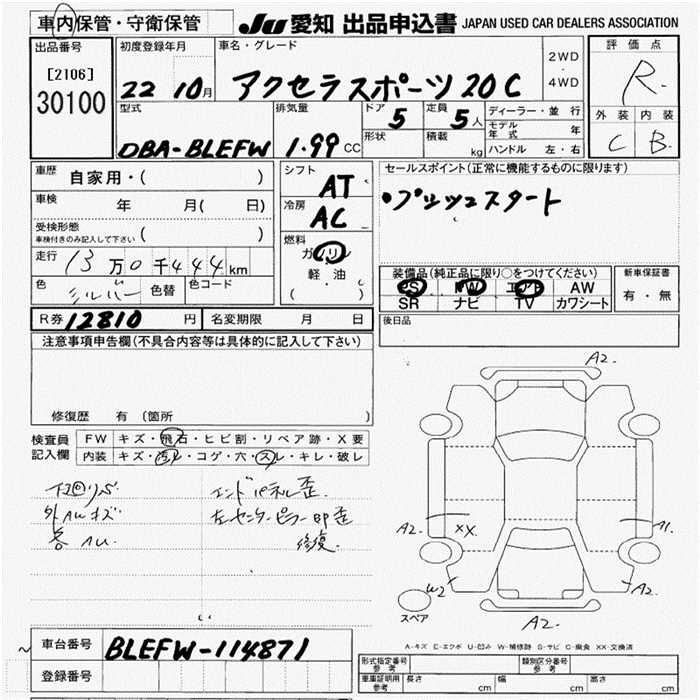 車内保管・守衛保管
JU 愛知 出品申込書 JAPAN USED CAR DEALERS ASSOCIATION
出品番号
[2106]
30100
初度登録年月
22 10月
車名・グレード
アクセラスポーツ 20C
2WD
4WD
評価点
R
外装 内装
C B
型式
DBA-BLEFW
排気量
1.99 CC
ドア
5
定員
5人
形状
積載
kg
ディーラー・並行
モデル年式 年
ハンドル 左・右
車歴
自家用・( )
車検
年 月( 日)
受検形態
車検付きのみ記入して下さい ( )
走行
13万0千444km
色
シルバー
色替
色コード
シフト
AT
冷房
AC
燃料
ガソリン
軽・油
( )
セールスポイント(正常に機能するものに限ります)
・プッシュスタート
装備品(純正品に限り○をつけてください)
PS PW エアB AW
SR ナビ TV カワシート
新車保証書
有・無
R券 12810 円
名変期限 月 日
後日品
注意事項申告欄(不具合内容等は具体的に記入して下さい)
修復歴 有 〔箇所 〕
検査員記入欄
FW キズ・飛石・ヒビ割・リペア跡・X要
内装 キズ・汚レ・コゲ・穴・スレ・キレ・破レ
下回りサビ
外AWキズ
各AU.
エンドパネル歪
左センターピラー印歪
修復.
A2.
A2.
XX.
A1.
W2
A2.
A2.
スペア
A-キズ E-エクボ U-凹み W-補修跡 S-サビ C-腐食 XX-交換済
車台番号
BLEFW-114871
登録番号
形式指定番号 参考
類別区分番号 参考
車庫証明用 参考
長さ cm 幅 cm 高さ cm